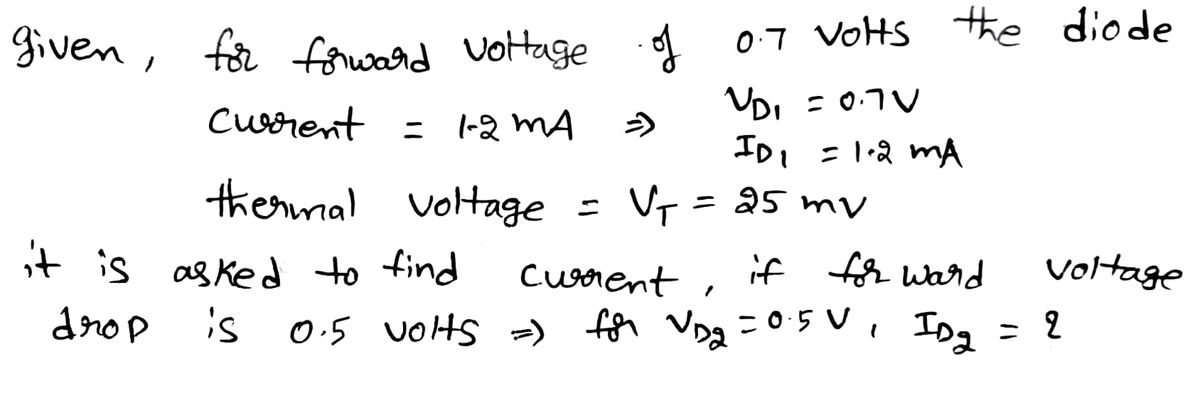 given, for forward voltage of 0.7 volts the diode
current = 1.2 mA ⇒ V_D1 = 0.7V
I_D1 = 1.2 mA
thermal voltage = V_T = 25 mv
it is asked to find current, if forward voltage
drop is 0.5 volts ⇒ for V_D2 = 0.5 V, I_D2 = ?